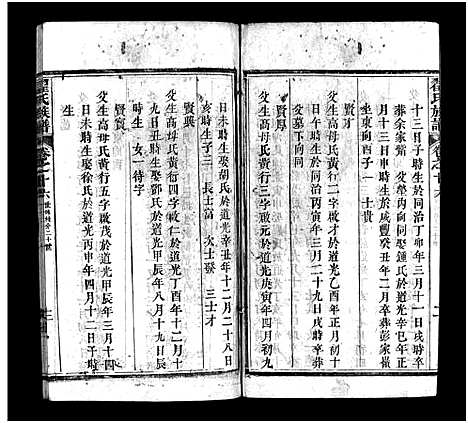 瞿氏族譜
卷之十六
十三日子時生於同治丁卯年三月十一日戌時卒
葬余家䂬 父塋內向同娶鍾氏於道光辛巳年正
月十三日申時生於咸豐癸丑年二月卒葬彭家嶺
坐東向西子一 士貴
賢才
父生高母氏黃行二字啟才於道光乙酉年正月初十
日時生於同治丙寅年三月二十九日戌時卒葬
父墓下向同
賢厚
父生高母氏黃行三字啟元於道光庚寅年四月初九
日未時生娶胡氏於道光辛丑年十二月二十八日
亥時生子三 長士富 次士發 三士才
賢興
父生高母氏黃行四字啟仁於道光丁酉年十二月十
九日辰時生娶鄧氏於道光甲辰年八月十九日辰
時生 女一待字
賢賓
父生高母氏黃行五字啟 於道光甲辰年三月十四
日時生娶徐氏於道光丙申年四月十二日子時
生
瞿氏族譜
卷之十六